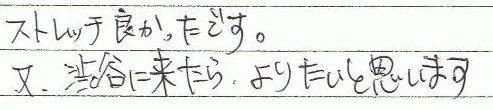 ストレッチ良かったです。
又、渋谷に来たら、よりたいと思います